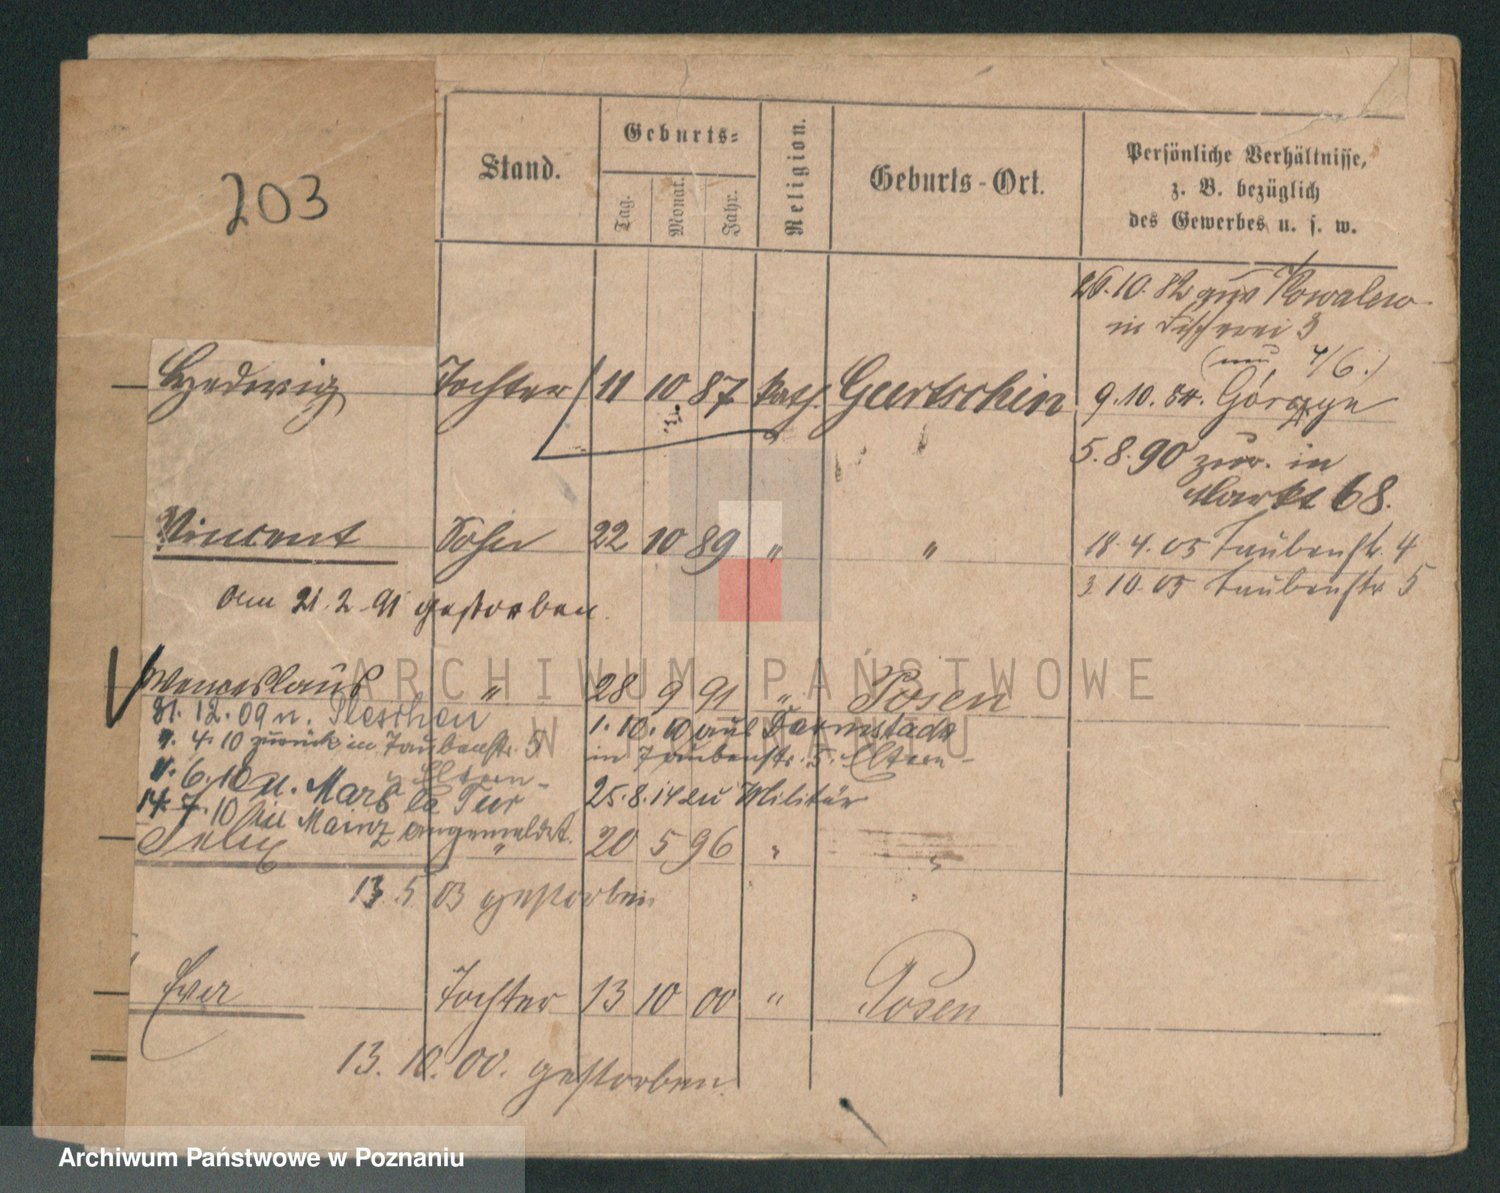 203
Stand.
Geburts-
Tag.
Monat.
Jahr.
Religion.
Geburts-Ort.
Persönliche Verhältnisse,
z. B. bezüglich
des Gewerbes u. s. w.
26.10.82 aus Kowalew
in Fischerei 3
Hedwig Tochter 11 10 87 kath. Guertschin
9.10.84. Górczyn
5.8.90 zur. in
Markt 68.
Vincent Sohn 22 10 89 " "
18.4.05 Taubenstr. 4
3.10.05 Taubenstr 5
am 21.2.91 gestorben.
Wenceslaus " 28 9 91 " Posen
31.12.09 n. Pleschen
4.10 zurück in Taubenstr. 5
Eltern
1.10.10 aus Darmstadt
in Taubenstr. 5. Eltern
6.10 n. Mars la Tur
14.7.10 Mainz angemeldet.
25.8.14 zu Militär
Felix " 20 5 96 " "
13.5.03 gestorben
Eva Tochter 13 10 00 " Posen
13.10.00. gestorben
ARCHIWUM PAŃSTWOWE
W POZNANIU
Archiwum Państwowe w Poznaniu